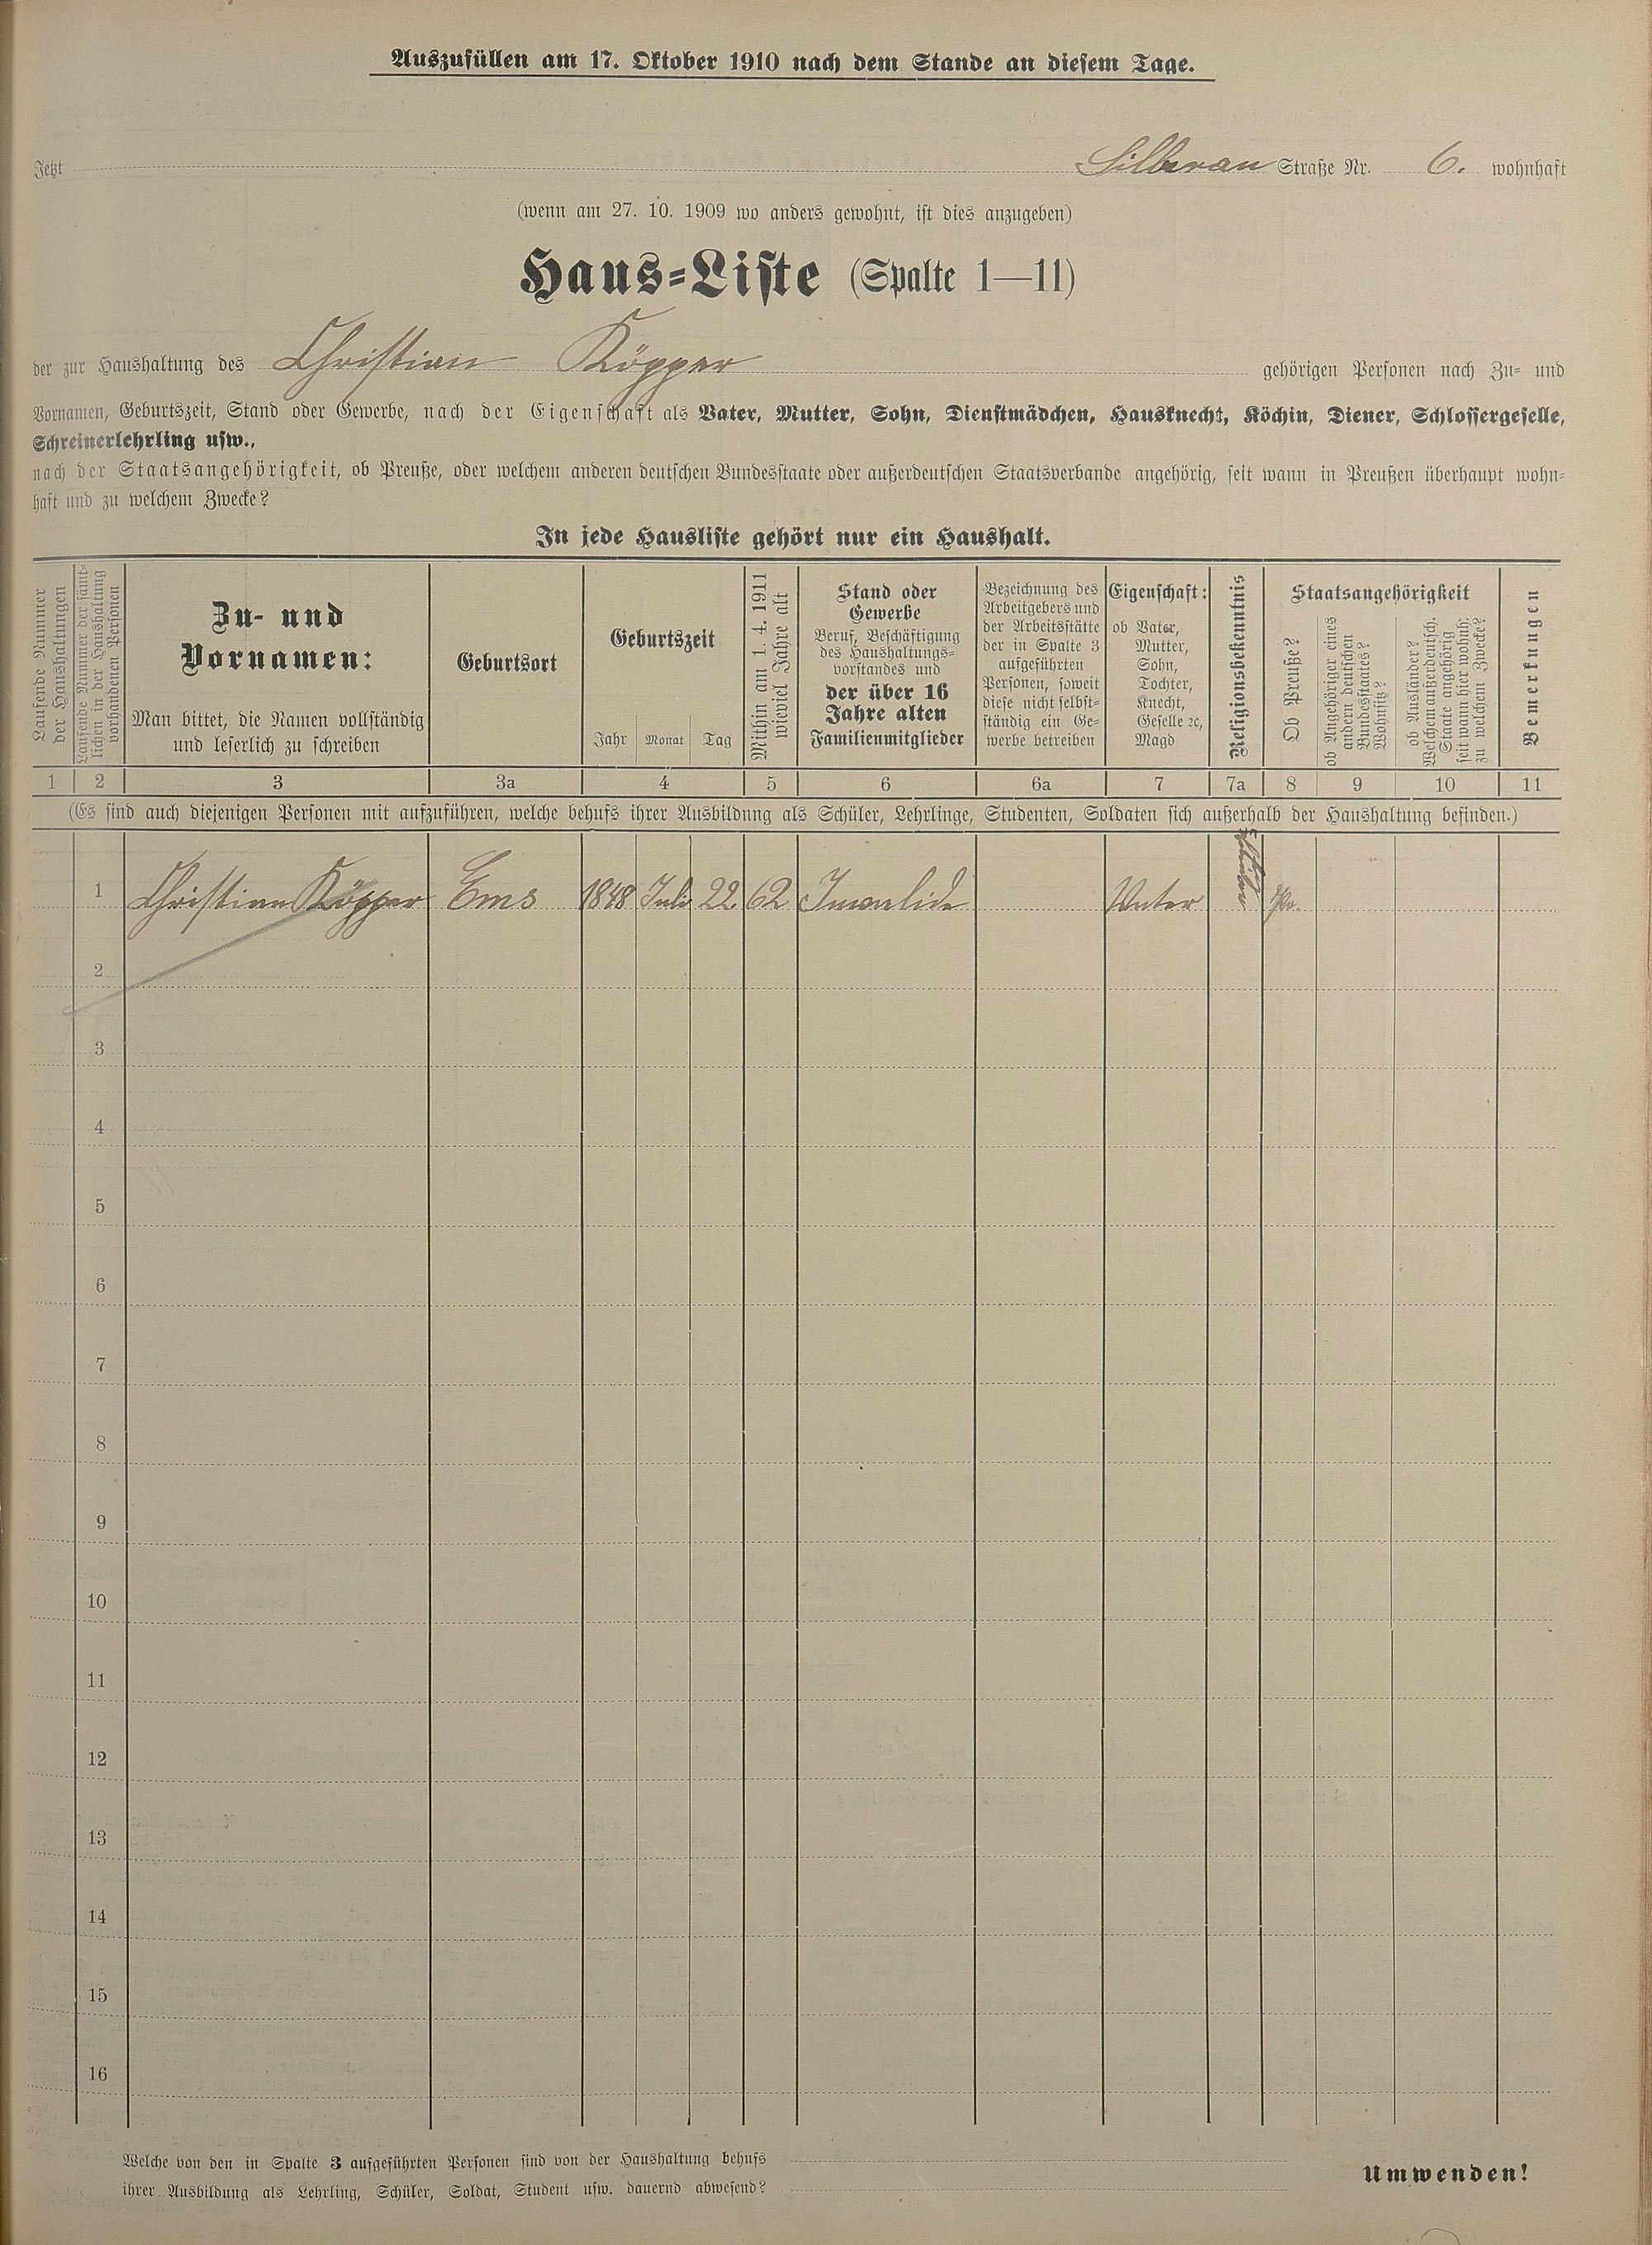 Auszufüllen am 17. Oktober 1910 nach dem Stande an diesem Tage.
Jetzt Silberau Straße Nr. 6. wohnhaft
(wenn am 27. 10. 1909 wo anders gewohnt, ist dies anzugeben)
Haus-Liste (Spalte 1—11)
der zur Haushaltung des Christian Köpper gehörigen Personen nach Zu- und
Vornamen, Geburtszeit, Stand oder Gewerbe, nach der Eigenschaft als Vater, Mutter, Sohn, Dienstmädchen, Hausknecht, Köchin, Diener, Schlossergeselle,
Schreinerlehrling usw.,
nach der Staatsangehörigkeit, ob Preuße, oder welchem anderen deutschen Bundesstaate oder außerdeutschen Staatsverbande angehörig, seit wann in Preußen überhaupt wohn-
haft und zu welchem Zwecke?
In jede Hausliste gehört nur ein Haushalt.
Laufende Nummer
der Haushaltungen
Laufende Nummer der sämt-
lichen in der Haushaltung
vorhandenen Personen
Zu- und
Vornamen:
Man bittet, die Namen vollständig
und leserlich zu schreiben
Geburtsort
Geburtszeit
Jahr Monat Tag
Mithin am 1. 4. 1911
wieviel Jahre alt
Stand oder
Gewerbe
Beruf, Beschäftigung
des Haushaltungs-
vorstandes und
der über 16
Jahre alten
Familienmitglieder
Bezeichnung des
Arbeitgebers und
der Arbeitsstätte
der in Spalte 3
aufgeführten
Personen, soweit
diese nicht selbst-
ständig ein Ge-
werbe betreiben
Eigenschaft:
ob Vater,
Mutter,
Sohn,
Tochter,
Knecht,
Geselle ꝛc,
Magd
Religionsbekenntnis
Staatsangehörigkeit
Ob Preuße?
ob Angehöriger eines
andern deutschen
Bundesstaates?
Wohnsitz?
ob Ausländer?
Welchem außerdeutsch.
Staate angehörig
seit wann hier wohnh.
zu welchem Zwecke?
Bemerkungen
1 2 3 3a 4 5 6 6a 7 7a 8 9 10 11
(Es sind auch diejenigen Personen mit aufzuführen, welche behufs ihrer Ausbildung als Schüler, Lehrlinge, Studenten, Soldaten sich außerhalb der Haushaltung befinden.)
1 Christian Köpper Ems 1848 Juli 22 62 Invalide Vater Pr.
2
3
4
5
6
7
8
9
10
11
12
13
14
15
16
Welche von den in Spalte 3 aufgeführten Personen sind von der Haushaltung behufs
ihrer Ausbildung als Lehrling, Schüler, Soldat, Student usw. dauernd abwesend?
Umwenden!